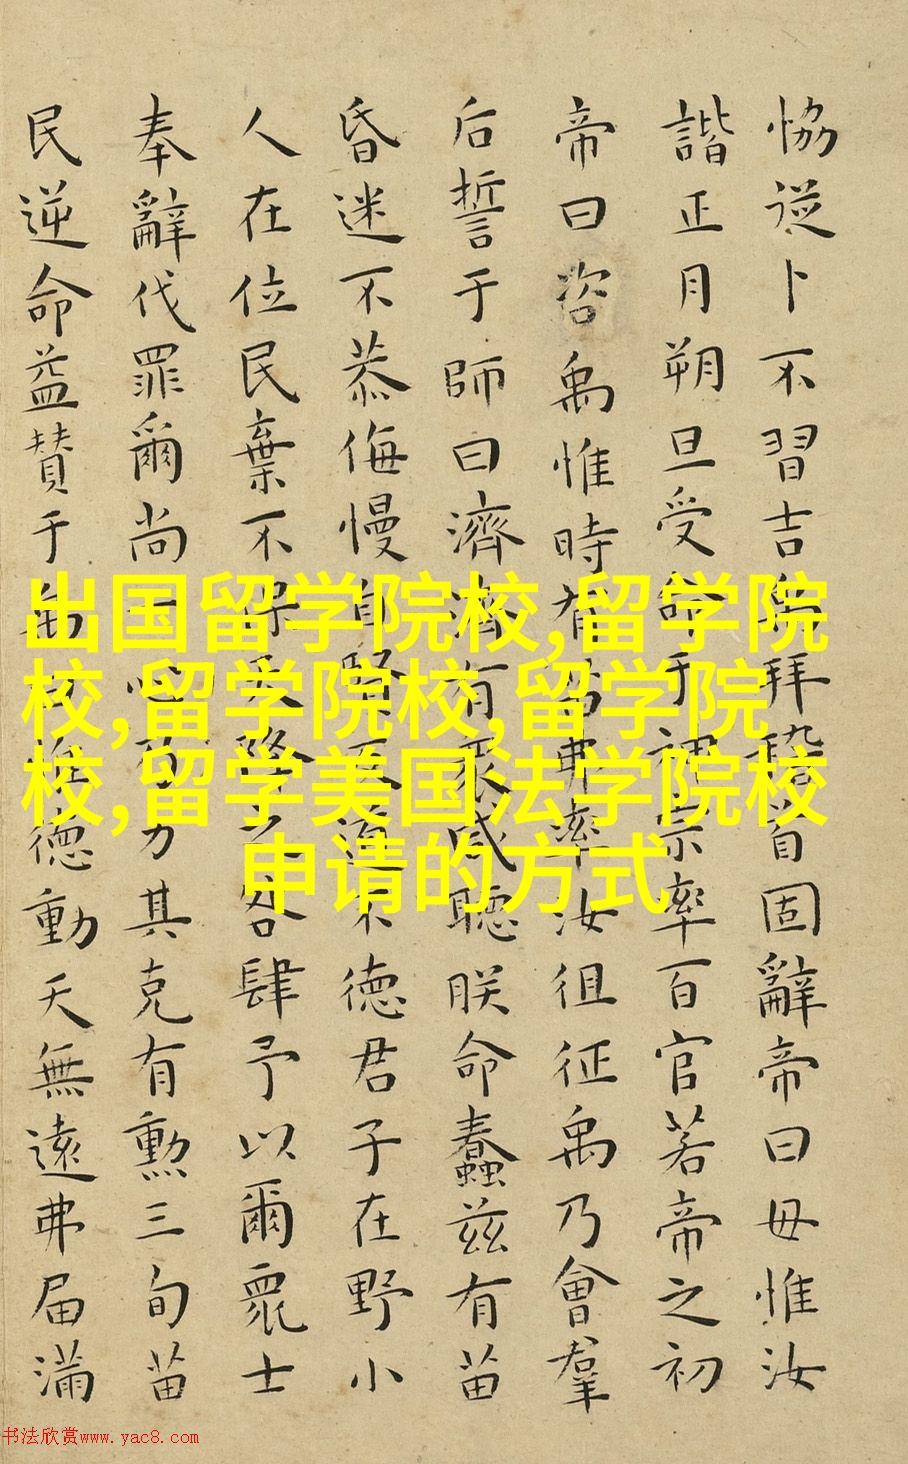 恊從卜不習吉禹拜稽首固辭帝曰毋惟汝
諧正月朔旦受命于神宗率百官若帝之初
帝曰咨禹惟時有苗弗率汝徂征禹乃會羣
后誓于師曰濟濟有衆咸聽朕命蠢兹有苗
昏迷不恭侮慢自賢反道不徳君子在野小
人在位民棄不保天降之咎肆予以爾衆士
奉辭伐罪爾尚一心乃力其克有勲三旬苗
民逆命益贊于禹曰惟徳動天無遠弗届滿
出国留学院校,留学院
校,留学院校,留学院
校,留学美国法学院校
申请的方式
书法欣赏www.yac8.com